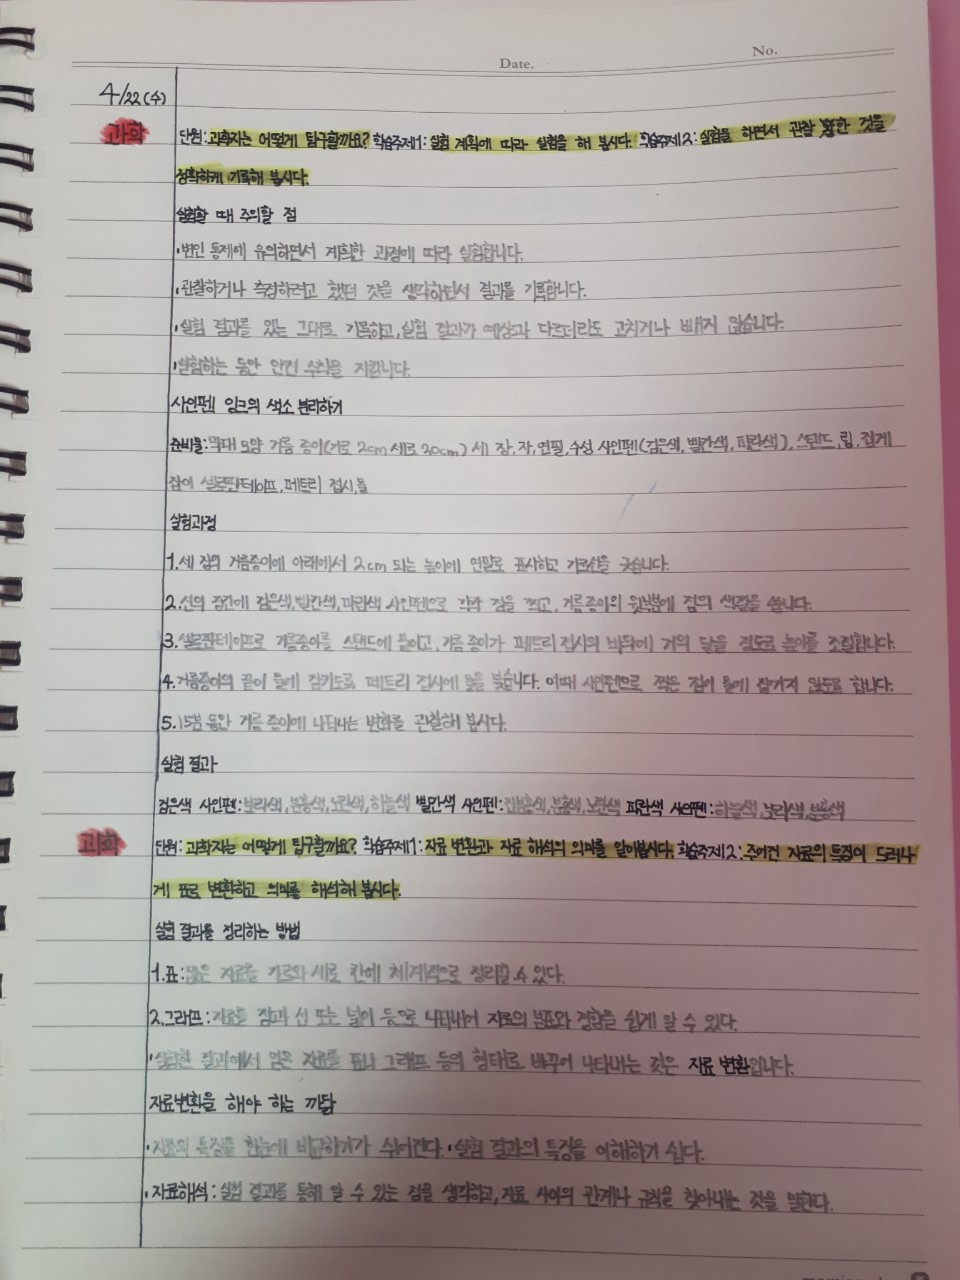 Date.
No.
4/22(수)
과학
단원: 과학자는 어떻게 탐구할까요? 학습주제1: 실험 계획에 따라 실험을 해 봅시다. 학습주제2: 실험을 하면서 관찰 한 것을
정확하게 기록해 봅시다.
실험할 때 주의할 점
·변인 통제에 유의하면서 계획한 과정에 따라 실험합니다.
·관찰하거나 측정하려고 했던 것을 생각하면서 결과를 기록합니다.
·실험 결과를 있는 그대로 기록하고, 실험 결과가 예상과 다르더라도 고치거나 빼지 않습니다.
·실험하는 동안 안전 수칙을 지킵니다.
사인펜 잉크의 색소 분리하기
준비물: 막대 모양 거름 종이(가로 2cm 세로 20cm) 세 장, 자, 연필, 수성 사인펜(검은색, 빨간색, 파란색), 스탠드, 링, 집게
잡이 셀로판테이프, 페트리 접시, 물
실험과정
1. 세 장의 거름종이에 아래에서 2cm 되는 높이에 연필로 표시하고 가로선을 긋습니다.
2. 선의 중간에 검은색, 빨간색, 파란색 사인펜으로 각각 점을 찍고, 거름종이의 윗부분에 점의 색깔을 씁니다.
3. 셀로판테이프로 거름종이를 스탠드에 붙이고, 거름 종이가 페트리 접시의 바닥에 거의 닿을 정도로 높이를 조절합니다.
4. 거름종이의 끝이 물에 잠기도록 페트리 접시에 물을 붓습니다. 이때 사인펜으로 찍은 점이 물에 잠기지 않도록 합니다.
5. 15분 동안 거름 종이에 나타나는 변화를 관찰해 봅시다.
실험 결과
검은색 사인펜: 보라색, 분홍색, 노란색, 하늘색 빨간색 사인펜: 진분홍색, 분홍색, 노란색 파란색 사인펜: 하늘색, 보라색, 분홍색
과학
단원: 과학자는 어떻게 탐구할까요? 학습주제1: 자료 변환과 자료 해석의 의미를 알아봅시다. 학습주제2: 주어진 자료의 특징이 드러나
게 표로 변환하고 의미를 해석해 봅시다.
실험 결과를 정리하는 방법
1. 표: 많은 자료를 가로와 세로 칸에 체계적으로 정리할 수 있다.
2. 그래프: 자료를 점과 선 또는 넓이 등으로 나타내어 자료의 분포와 경향을 쉽게 알 수 있다.
·실험한 결과에서 얻은 자료를 표나 그래프 등의 형태로 바꾸어 나타내는 것은 자료 변환입니다.
자료변환을 해야 하는 까닭
·자료의 특징을 한눈에 비교하기가 쉬어진다. ·실험 결과의 특징을 이해하기 쉽다.
·자료해석: 실험 결과를 통해 알 수 있는 점을 생각하고, 자료 사이의 관계나 규칙을 찾아내는 것을 말한다.